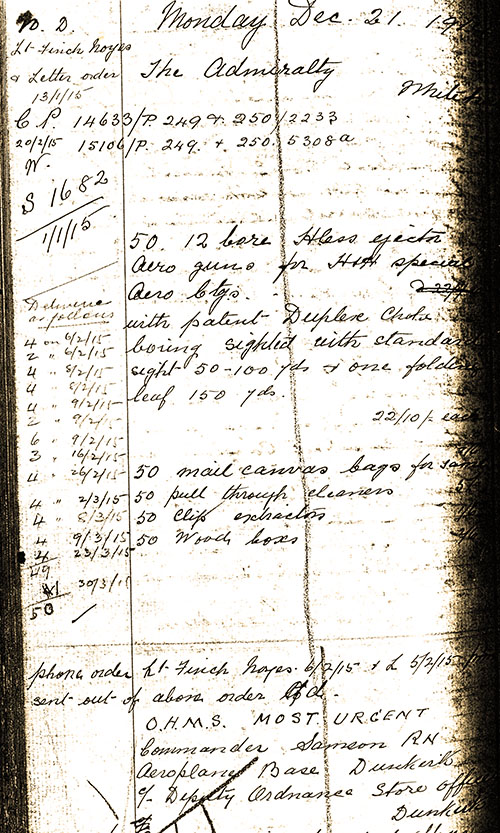 W. D.
Monday Dec. 21. 19
Lt. Finch Noyes
& Letter order
13/1/15
The Admiralty
C P 14633/P. 249 & 250/2233
20/2/15 15106/P. 249. & 250. 5308a
N.
S 1682
1/1/15.
50. 12 bore Hless ejector
Aero guns for H&H special
Aero Ctgs.
with patent Duplex Choke
boring sighted with standard
sight 50-100 yds & one folding
leaf 150 yds.
22/10/- each
50 mail canvas bags for same
50 pull through cleaners
50 Clip extractors
50 Wood boxes
Deliveries
as follows
4 on 6/2/15
2 " 6/2/15
4 " 8/2/15
4 " 8/2/15
4 " 9/2/15
2 " 9/2/15
6 " 9/2/15
3 " 16/2/15
4 " 26/2/15
4 " 2/3/15
4 " 8/3/15
4 " 9/3/15
4 " 23/3/15
49
1 30/3/15
50
phone order Lt. Finch Noyes. 6/2/15 & L 5/2/15
sent out of above order
O.H.M.S. MOST URGENT
Commander Samson RN
Aeroplane Base Dunkerk
c/- Deputy Ordnance Store office
Dunkerk